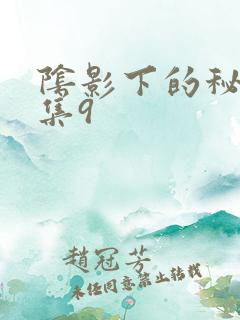 陰影下的秘
集9
趙冠芳
未經同意禁止轉載